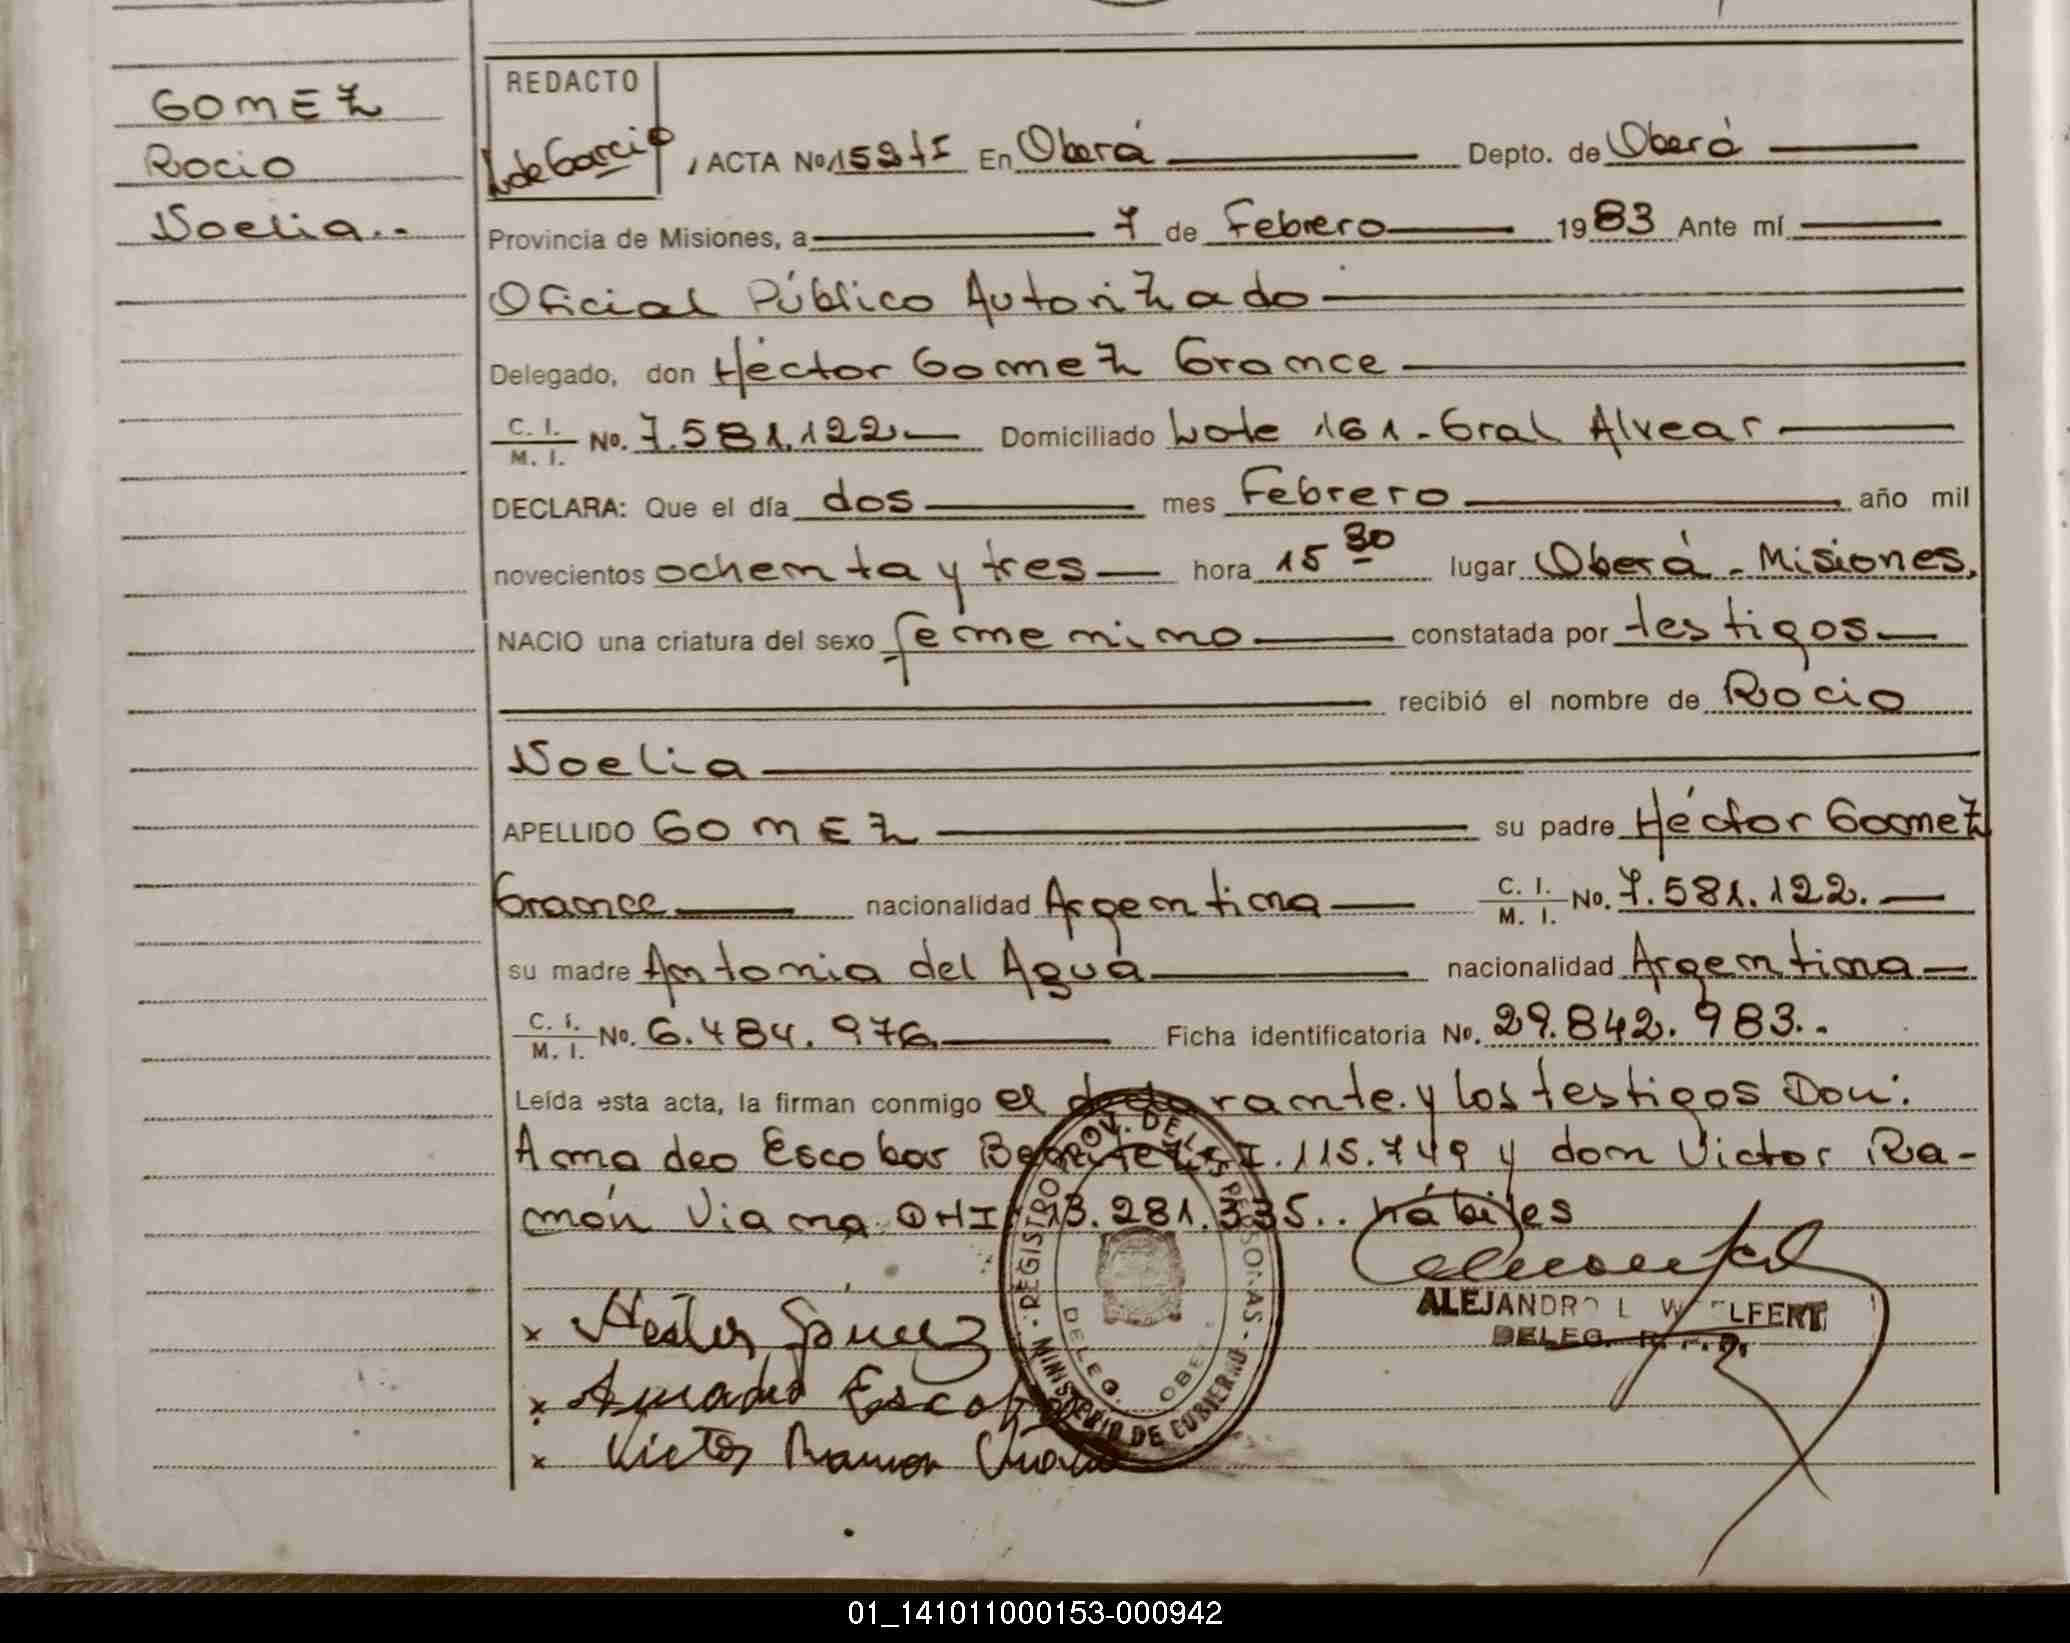 GOMEZ
Rocio
Noelia..
REDACTO
L. de Garcia
, ACTA No 159 t I En Oberá Depto. de Oberá
Provincia de Misiones, a 7 de Febrero 1983 Ante mí
Oficial Público Autorizado
Delegado, don Héctor Gomez Grance
C. I.
M. I. No. 7.581.122 Domiciliado Lote 161 - Gral Alvear
DECLARA: Que el día dos mes Febrero año mil
novecientos ochenta y tres hora 15 30 lugar Oberá - Misiones,
NACIO una criatura del sexo femenino constatada por testigos
recibió el nombre de Rocio
Noelia
APELLIDO GOMEZ su padre Héctor Gomez
Grance nacionalidad Argentina C. I.
M. I. No. 7.581.122.
su madre Antonia del Agua nacionalidad Argentina
C. I.
M. I. No. 6.484.976 Ficha identificatoria No. 29.842.983..
Leída esta acta, la firman conmigo el declarante y los testigos Don:
Amadeo Escobar Benitez C.I. 115.749 y don Victor Ra-
món Viana DNI 13.281.335.. hábiles
REGISTRO PROV. DE LAS PERSONAS - MINISTERIO DE GOBIERNO -
DELEG. OBE
ALEJANDRO L W LFERT
DELEG. R. P. P.
x Hector Gomez
x Amadeo Escobar
x Victor Ramon Viana
01_141011000153-000942